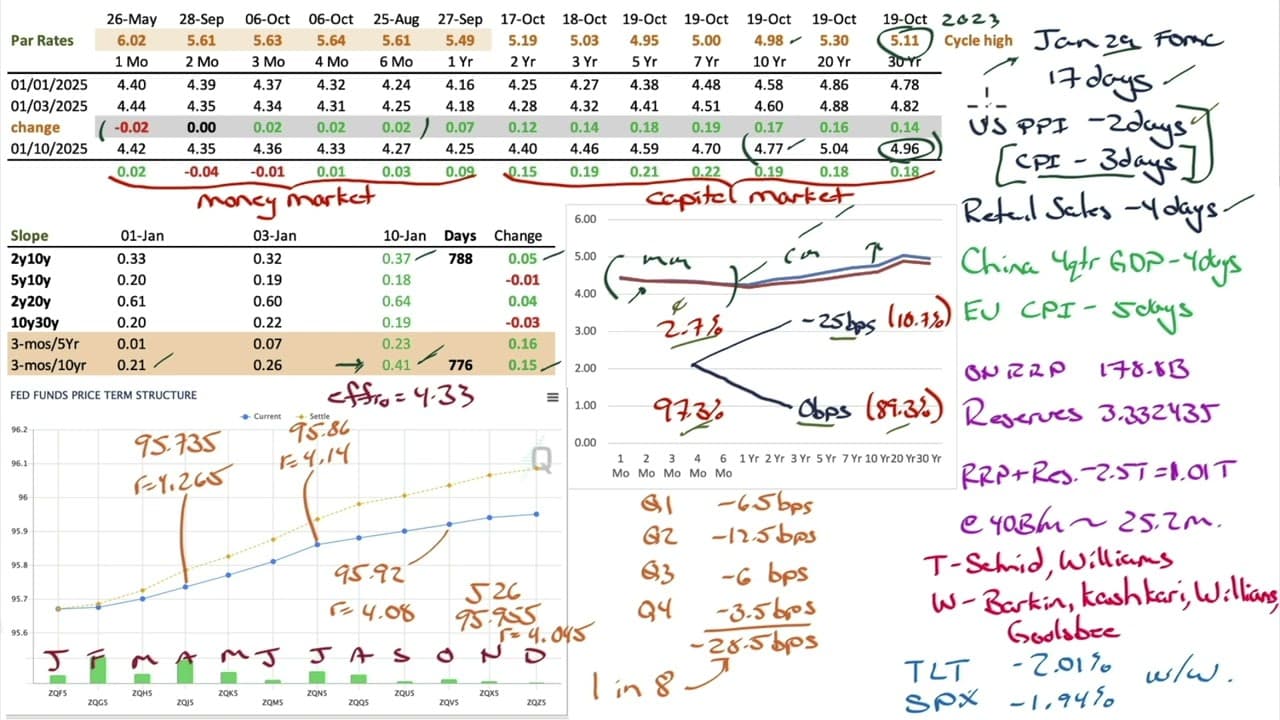 26-May 28-Sep 06-Oct 06-Oct 25-Aug 27-Sep 17-Oct 18-Oct 19-Oct 19-Oct 19-Oct 19-Oct 19-Oct 2023
Par Rates 6.02 5.61 5.63 5.64 5.61 5.49 5.19 5.03 4.95 5.00 4.98 5.30 5.11 Cycle high
1 Mo 2 Mo 3 Mo 4 Mo 6 Mo 1 Yr 2 Yr 3 Yr 5 Yr 7 Yr 10 Yr 20 Yr 30 Yr
01/01/2025 4.40 4.39 4.37 4.32 4.24 4.16 4.25 4.27 4.38 4.48 4.58 4.86 4.78
01/03/2025 4.44 4.35 4.34 4.31 4.25 4.18 4.28 4.32 4.41 4.51 4.60 4.88 4.82
change -0.02 0.00 0.02 0.02 0.02 0.07 0.12 0.14 0.18 0.19 0.17 0.16 0.14
01/10/2025 4.42 4.35 4.36 4.33 4.27 4.25 4.40 4.46 4.59 4.70 4.77 5.04 4.96
0.02 -0.04 -0.01 0.01 0.03 0.09 0.15 0.19 0.21 0.22 0.19 0.18 0.18
money market
capital market
Jan 29 FOMC
17 days
US PPI - 2days
[CPI - 3days]
Retail Sales - 4days
China 4qtr GDP - 4days
EU CPI - 5days
ON RRP 178.8B
Reserves 3.332435
RRP+Res. - 2.5T = 1.01T
@ 40B/m ~ 25.2m.
T - Schmid, Williams
W - Barkin, Kashkari, Williams,
Goolsbee
TLT -2.01%
SPX -1.94%
w/w.
Slope 01-Jan 03-Jan 10-Jan Days Change
2y10y 0.33 0.32 0.37 788 0.05
5y10y 0.20 0.19 0.18 -0.01
2y20y 0.61 0.60 0.64 0.04
10y30y 0.20 0.22 0.19 -0.03
3-mos/5Yr 0.01 0.07 0.23 0.16
3-mos/10yr 0.21 0.26 0.41 776 0.15
effr = 4.33
6.00
5.00
4.00
3.00
2.00
1.00
0.00
mm
cm
2.7%
-25bps (10.7%)
97.3%
0bps (89.3%)
1 Mo 2 Mo 3 Mo 4 Mo 6 Mo 1 Yr 2 Yr 3 Yr 5 Yr 7 Yr 10 Yr 20 Yr 30 Yr
FED FUNDS PRICE TERM STRUCTURE
Current Settle
96.2
96.1
96
95.9
95.8
95.7
95.6
95.735
r=4.265
95.86
r=4.14
95.92
r= 4.08
526
95.955
r= 4.045
Q
J F M A M J J A S O N D
ZQF5 ZQG5 ZQH5 ZQJ5 ZQK5 ZQM5 ZQN5 ZQQ5 ZQU5 ZQV5 ZQX5 ZQZ5
Q1 -6.5bps
Q2 -12.5bps
Q3 -6 bps
Q4 -3.5bps
-28.5bps
1 in 8